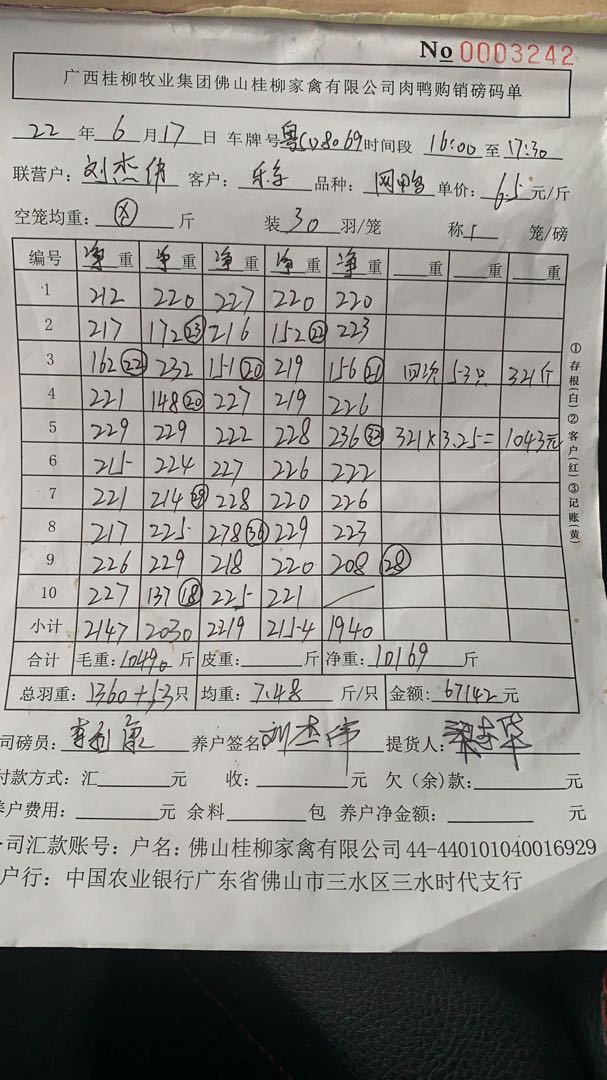 No 0003242
广西桂柳牧业集团佛山桂柳家禽有限公司肉鸭购销磅码单
22 年 6 月 17 日 车牌号 8069 时间段 16:00 至 17:30
联营户: 刘杰伟 客户: 乐 品种: 单价: 6.5 元/斤
空笼均重: 斤 装 30 羽/笼 称 5 笼/磅
编号 净重 净重 净重 净重 净重 重 重 重
1 212 220 227 220 220
2 217 172 23 216 152 22 223
3 162 22 232 151 20 219 156 21 回收 53只 321斤
4 221 148 20 227 219 226
5 229 229 222 228 236 32 321×3.25= 1043元
6 215 224 227 226 222
7 221 214 29 228 220 226
8 217 225 278 36 229 223
9 226 229 218 220 208 28
10 227 137 18 225 221
小计 2147 2030 2219 2154 1940
合计 毛重: 10490 斤 皮重: 斤 净重: 10169 斤
总羽重: 1360+53 只 均重: 7.48 斤/只 金额: 67142 元
司磅员: 养户签名: 刘杰伟 提货人: 华
付款方式: 汇 元 收: 元 欠(余)款: 元
养户费用: 元 余料 包 养户净金额: 元
公司汇款账号: 户名: 佛山桂柳家禽有限公司 44-440101040016929
户行: 中国农业银行广东省佛山市三水区三水时代支行
①存根(白)②客户(红)③记账(黄)